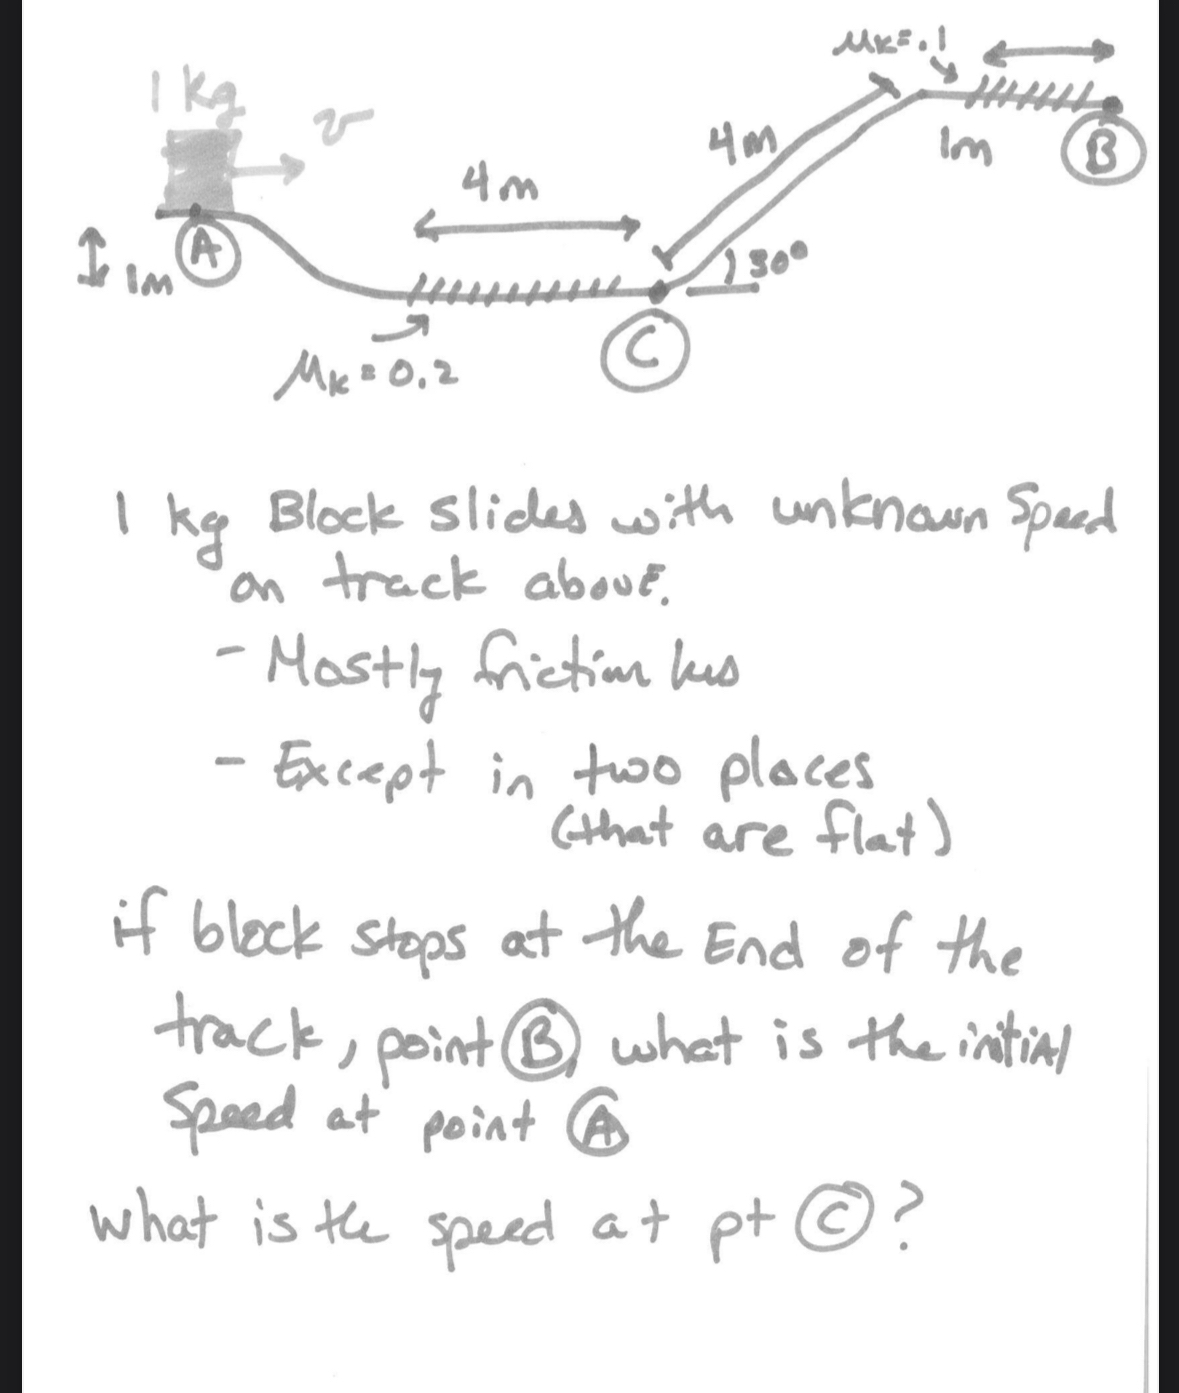 μk=.1
1 kg
v
4m
4m
1m
B
A
1m
30°
C
μk=0.2
1 kg Block slides with unknown Speed
on track above.
- Mostly frictionless
- Except in two places
(that are flat)
if block stops at the End of the
track, point B, what is the initial
Speed at point A
what is the speed at pt C?